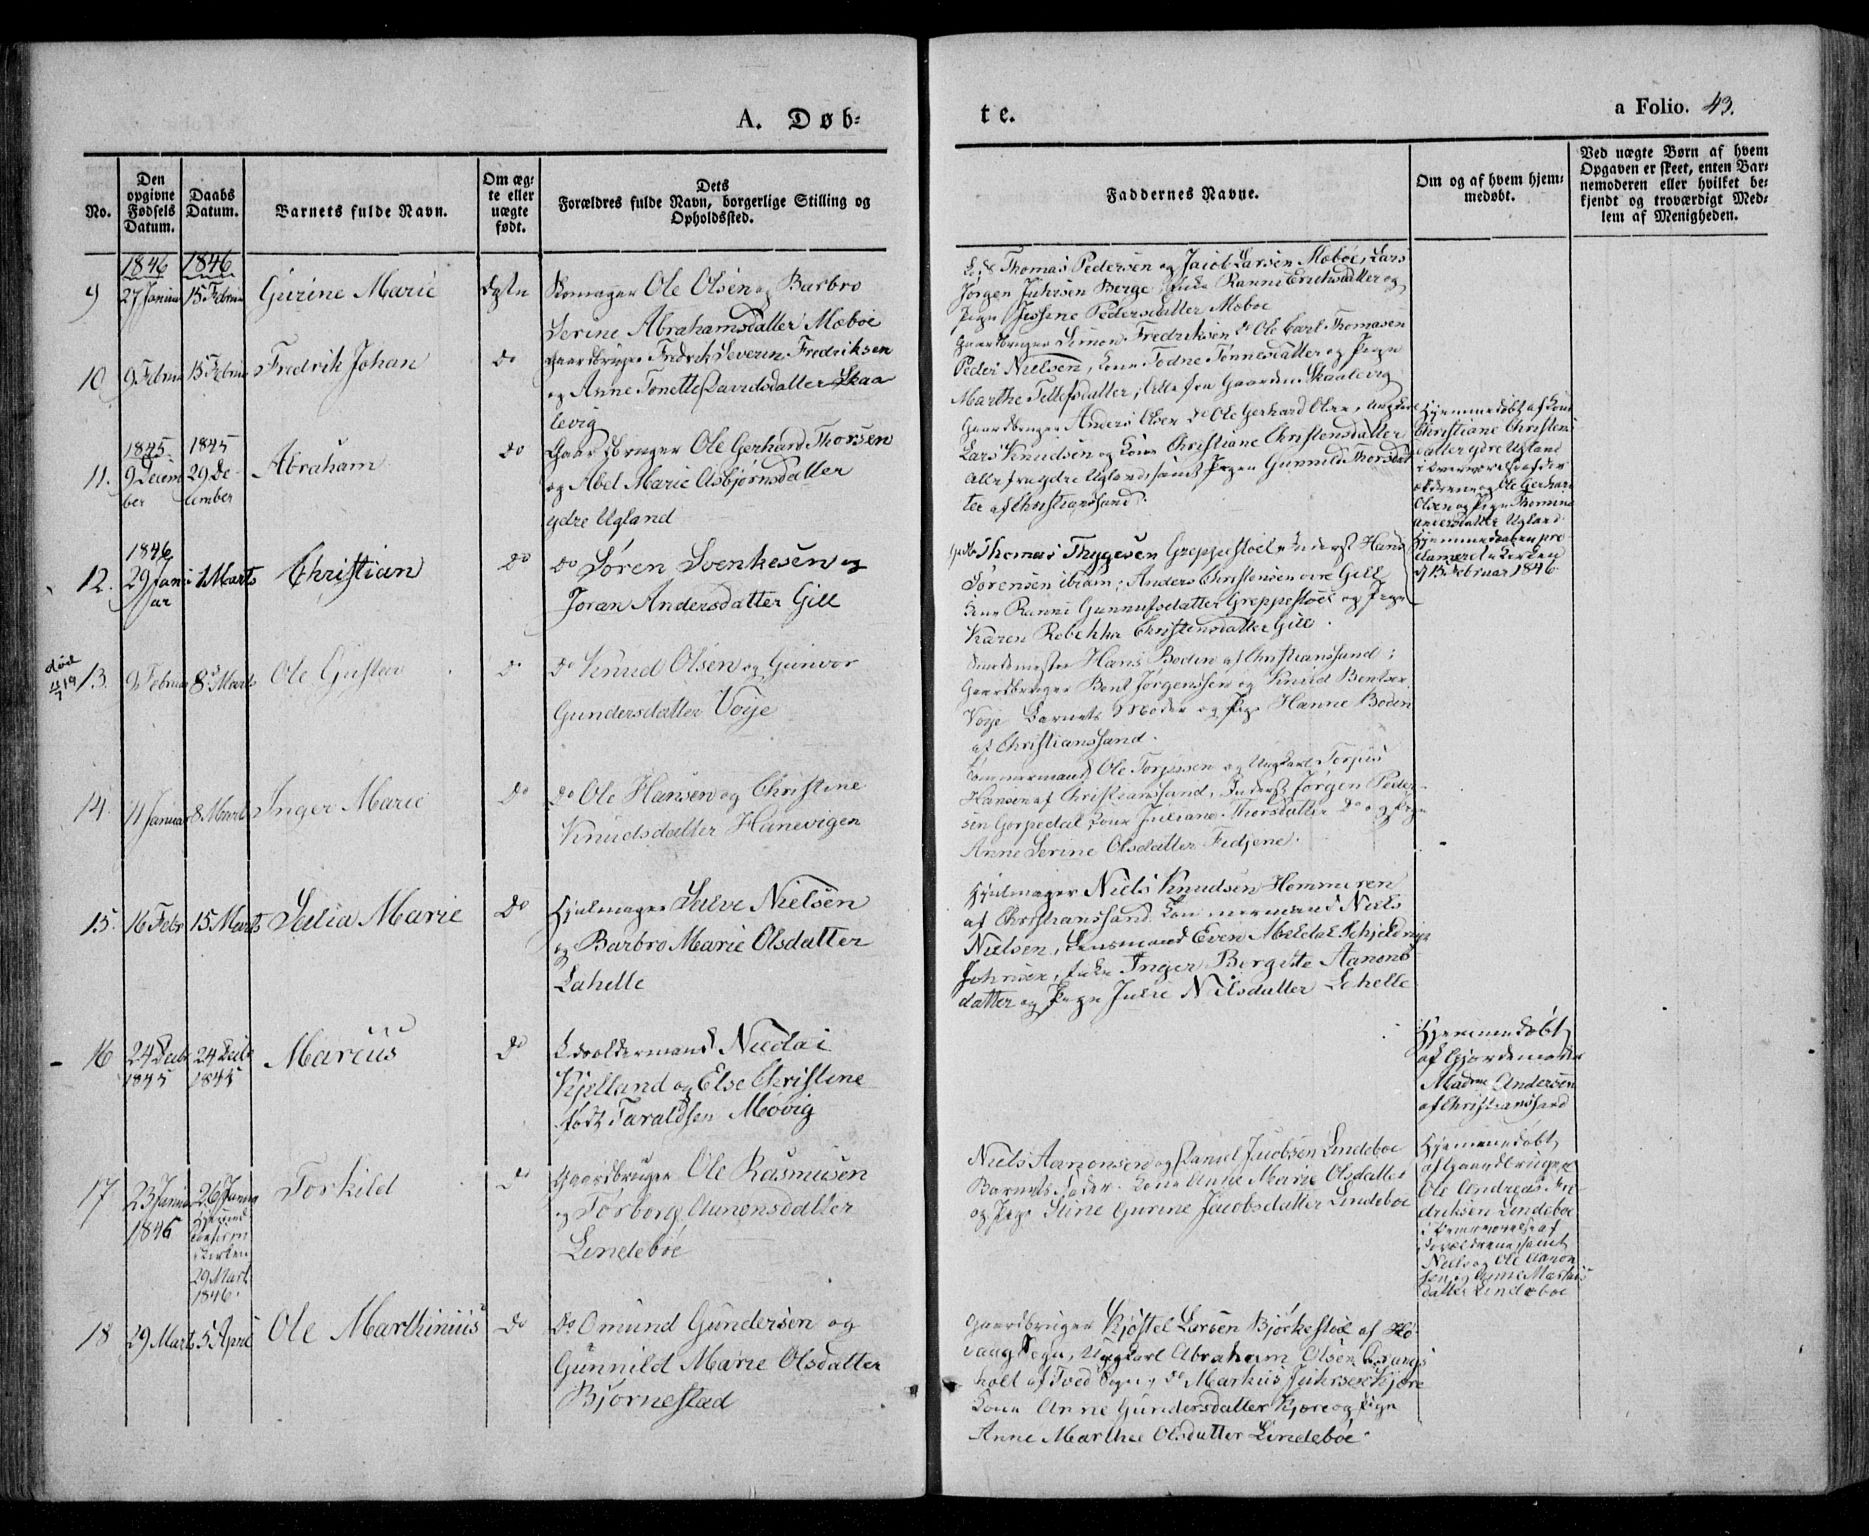 A. Døb-
te.
a Folio. 43.
No.
Den opgivne Fødsels Datum.
Daabs Datum.
Barnets fulde Navn.
Om ægte eller uægte født.
Dets
Forældres fulde Navn, borgerlige Stilling og
Opholdssted.
Faddernes Navne.
Om og af hvem hjemmedøbt.
Ved uægte Børn af hvem
Opgaven er skeet, enten Barnemoderen
eller hvilket bekjendt
og troværdigt Medlem
af Menigheden.
1846 1846
9 27 Januar 15 Februar Gurine Marie Ægte Ole Olsen og Barbro
Serine Abrahamsdatter Mæboe
Thomas Pedersen og Jacob Larsen Mæboe, Lars
Jørgen Berge Ranni Eriksdatter og
Pige Pedersdatter Mæboe
10. 9 Februar 15 Februar Fredrik Johan Do Gaardbruger Fredrik Severin Fredriksen
og Anne Tonette Davidsdatter Skaa
levig
Gaardbruger Simon Fredriksen Do Ole Carl Thomasen
Peder Nielsen, Kone Todne Tønnesdatter og Pige
Marthe Tellefsdatter, Alle fra Gaarden Skaalevig
1845 1845
11. 9 Decem
ber 29 De
cember Abraham Do Gaardbruger Ole Gerhard Thorsen
og Abel Marie Asbjørnsdatter
ydre Ugland
Gaardbruger Anders Olsen Do Ole Gerhard Olsen,
Lars Knudsen og Kone Christiane Christensdatter
Alle fra ydre Ugland, samt Pigen Gunnild Thorsdat
ter af Christianssand.
Hjemmedøbt af Kone
Christiane Christens
datter ydre Ugland
i Overværelse af For
ældrene og Ole Gerhard
Olsen og Pige
Andersdatter Ugland
Hjemmedaaben pro
clameret i Kirken
d 15 Februar 1846.
1846
12. 29 Janu
ar 1 Marts Christian Do Do Søren Svenkesen og
Joran Andersdatter Gill
Thomas Thygesen Greppestøel, Inderst Hans
Sørensen ibidm, Anders Christensen øvre Gill
Kone Ranni Gunnufsdatter Greppestøel og Pige
Karen Rebekka Christensdatter Gill.
død
11/7 19
13. 9 Februar 8 Marts Ole Gustav Do Do Knud Olsen og Gunvor
Gundersdatter Voje
Hans Boden af Christianssand;
Gaardbruger Bent Jørgenssen og Knud Bentsen
Voje Barnets Moder og Pige Hanne Boden
af Christianssand.
14. 11 Januar 8 Marts Inger Marie Do Do Ole Hansen og Christine
Knudsdatter Hanevigen
Tømmermand Ole Torjussen og Ungkarl Torjus
Hansen af Christianssand, Inderst Jørgen Peder
sen Kone Juliane Thorsdatter Do og Pige
Anne Serine Olsdatter Fidjene.
15. 16 Febr 15 Marts Salia Marie Do Hjulmager Salve Nielsen
og Barbro Marie Olsdatter
Lahelle
Hjulmager Niels Knudsen Hemmeren
af Christianssand Tømmermand Niels
Nielsen, Lensmand Even Abeldal Schjeldrup
Johnsen, Inger Bergitte Aanons
datter og Pige Julie Nilsdatter Lahelle
16 24 Decbr
1845 24 Decbr
1845 Marcus Do Nicolai
Kjelland og Else Christine
født Taraldsen Møvig
Hjemmedøbt
af Gjordemoder
Madme Andersen
af Christianssand
17 23 Januar
1846 26 Januar
i Kirken
29 Mart
1846. Torkild Do Gaardbruger Ole Rasmusen
og Torborg Aanonsdatter
Lindeboe
Niels Aanonsen og Daniel Jacobsen Lindeboe
Barnets Fader. Kone Anne Marie Olsdatter
og Pige Stine Gurine Jacobsdatter Lindeboe
Hjemmedøbt
af Gaardbruger
Ole Andreas Fre
driksen Lindeboe
i Overværelse af
Forældrene samt
Niels og Ole Aanon
sen og Anne Markus
datter Lindeboe
18 29 Marts 5 April Ole Marthinius Do Do Omund Gundersen og
Gunnild Marie Olsdatter
Bjørnestad
Gaardbruger Kjøstel Larsen Bjørkestøel af Hø
vaag Sogn, Ungkarl Abraham Olsen
holt af Tved Sogn, Do Markus Kjære
Kone Anne Gundersdatter Kjære og Pige
Anne Marthe Olsdatter Lindeboe.